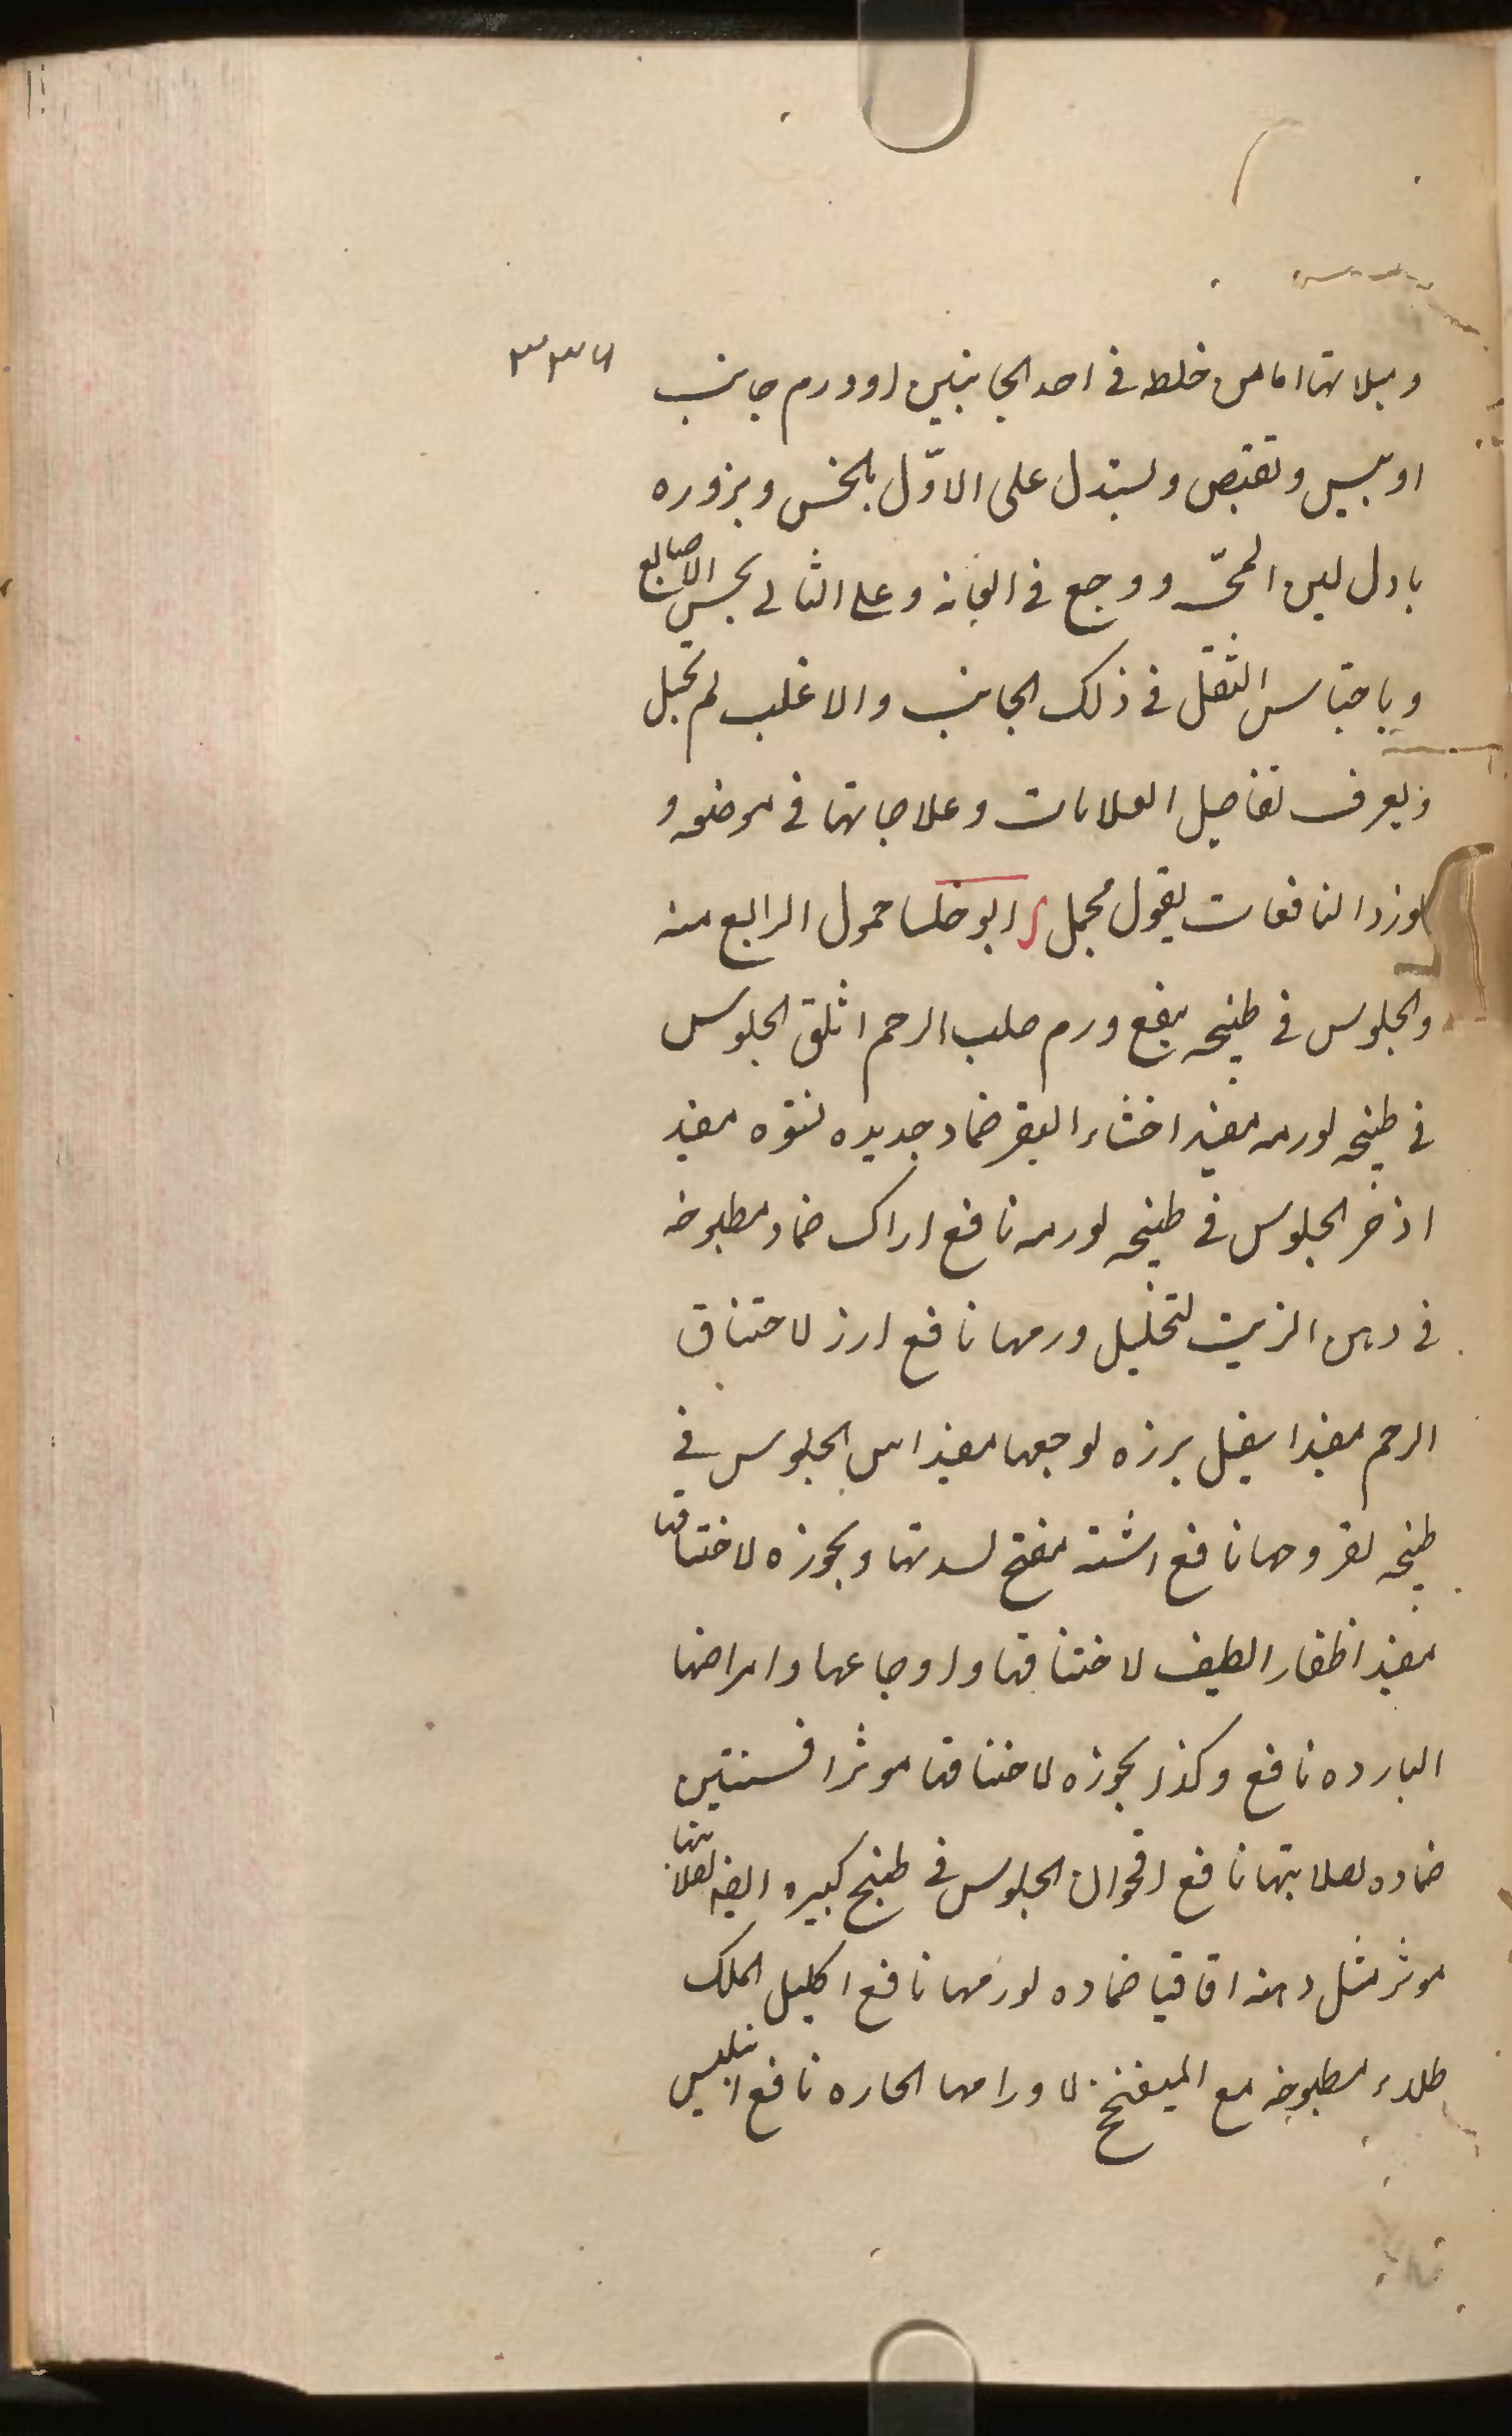 ٣٣٦
وميلانها اما من خلط فى احد الجانبين او ورم جانب
او يبس وتقبض ويستدل على الاوّل بالخس وبزوره
بادل لين المحىّ ووجع فى العانة وعلى الثانى بجس الاصابع
وباحتباس الثقل فى ذلك الجانب والاغلب لم تحبل
ويعرف تفاصيل العلامات وعلاجاتها فى موضعه و
اورد النافعات بقول مجمل ابو خلسا حمول الرابع منه
والجلوس فى طبيخه ينفع ورم صلب الرحم اثلق الجلوس
فى طبيخه لورمه مفيد اخثاء البقر ضماد جديده لنتوه مفيد
اذخر الجلوس فى طبيخه لورمه نافع اراك ضماد مطبوخه
فى دهن الزيت لتحليل ورمها نافع ارز لاختناق
الرحم مفيد اسفيل برزه لوجعها مفيد اس الجلوس فى
طبيخه لقروحها نافع اشنه مفتح لسدتها وبخوره لاختناقها
مفيد اظفار الطيف لاختناقها واوجاعها وامراضها
البارده نافع وكذا بخوره لاختناقها موثر افسنتين
ضماده لصلابتها نافع اقحوان الجلوس فى طبيخ كبيره ايضا لصلابتها
موثر مثل دهنه اقاقيا ضماده لورمها نافع اكليل الملك
طلاء مطبوخه مع الميفختج لاورامها الحاره نافع